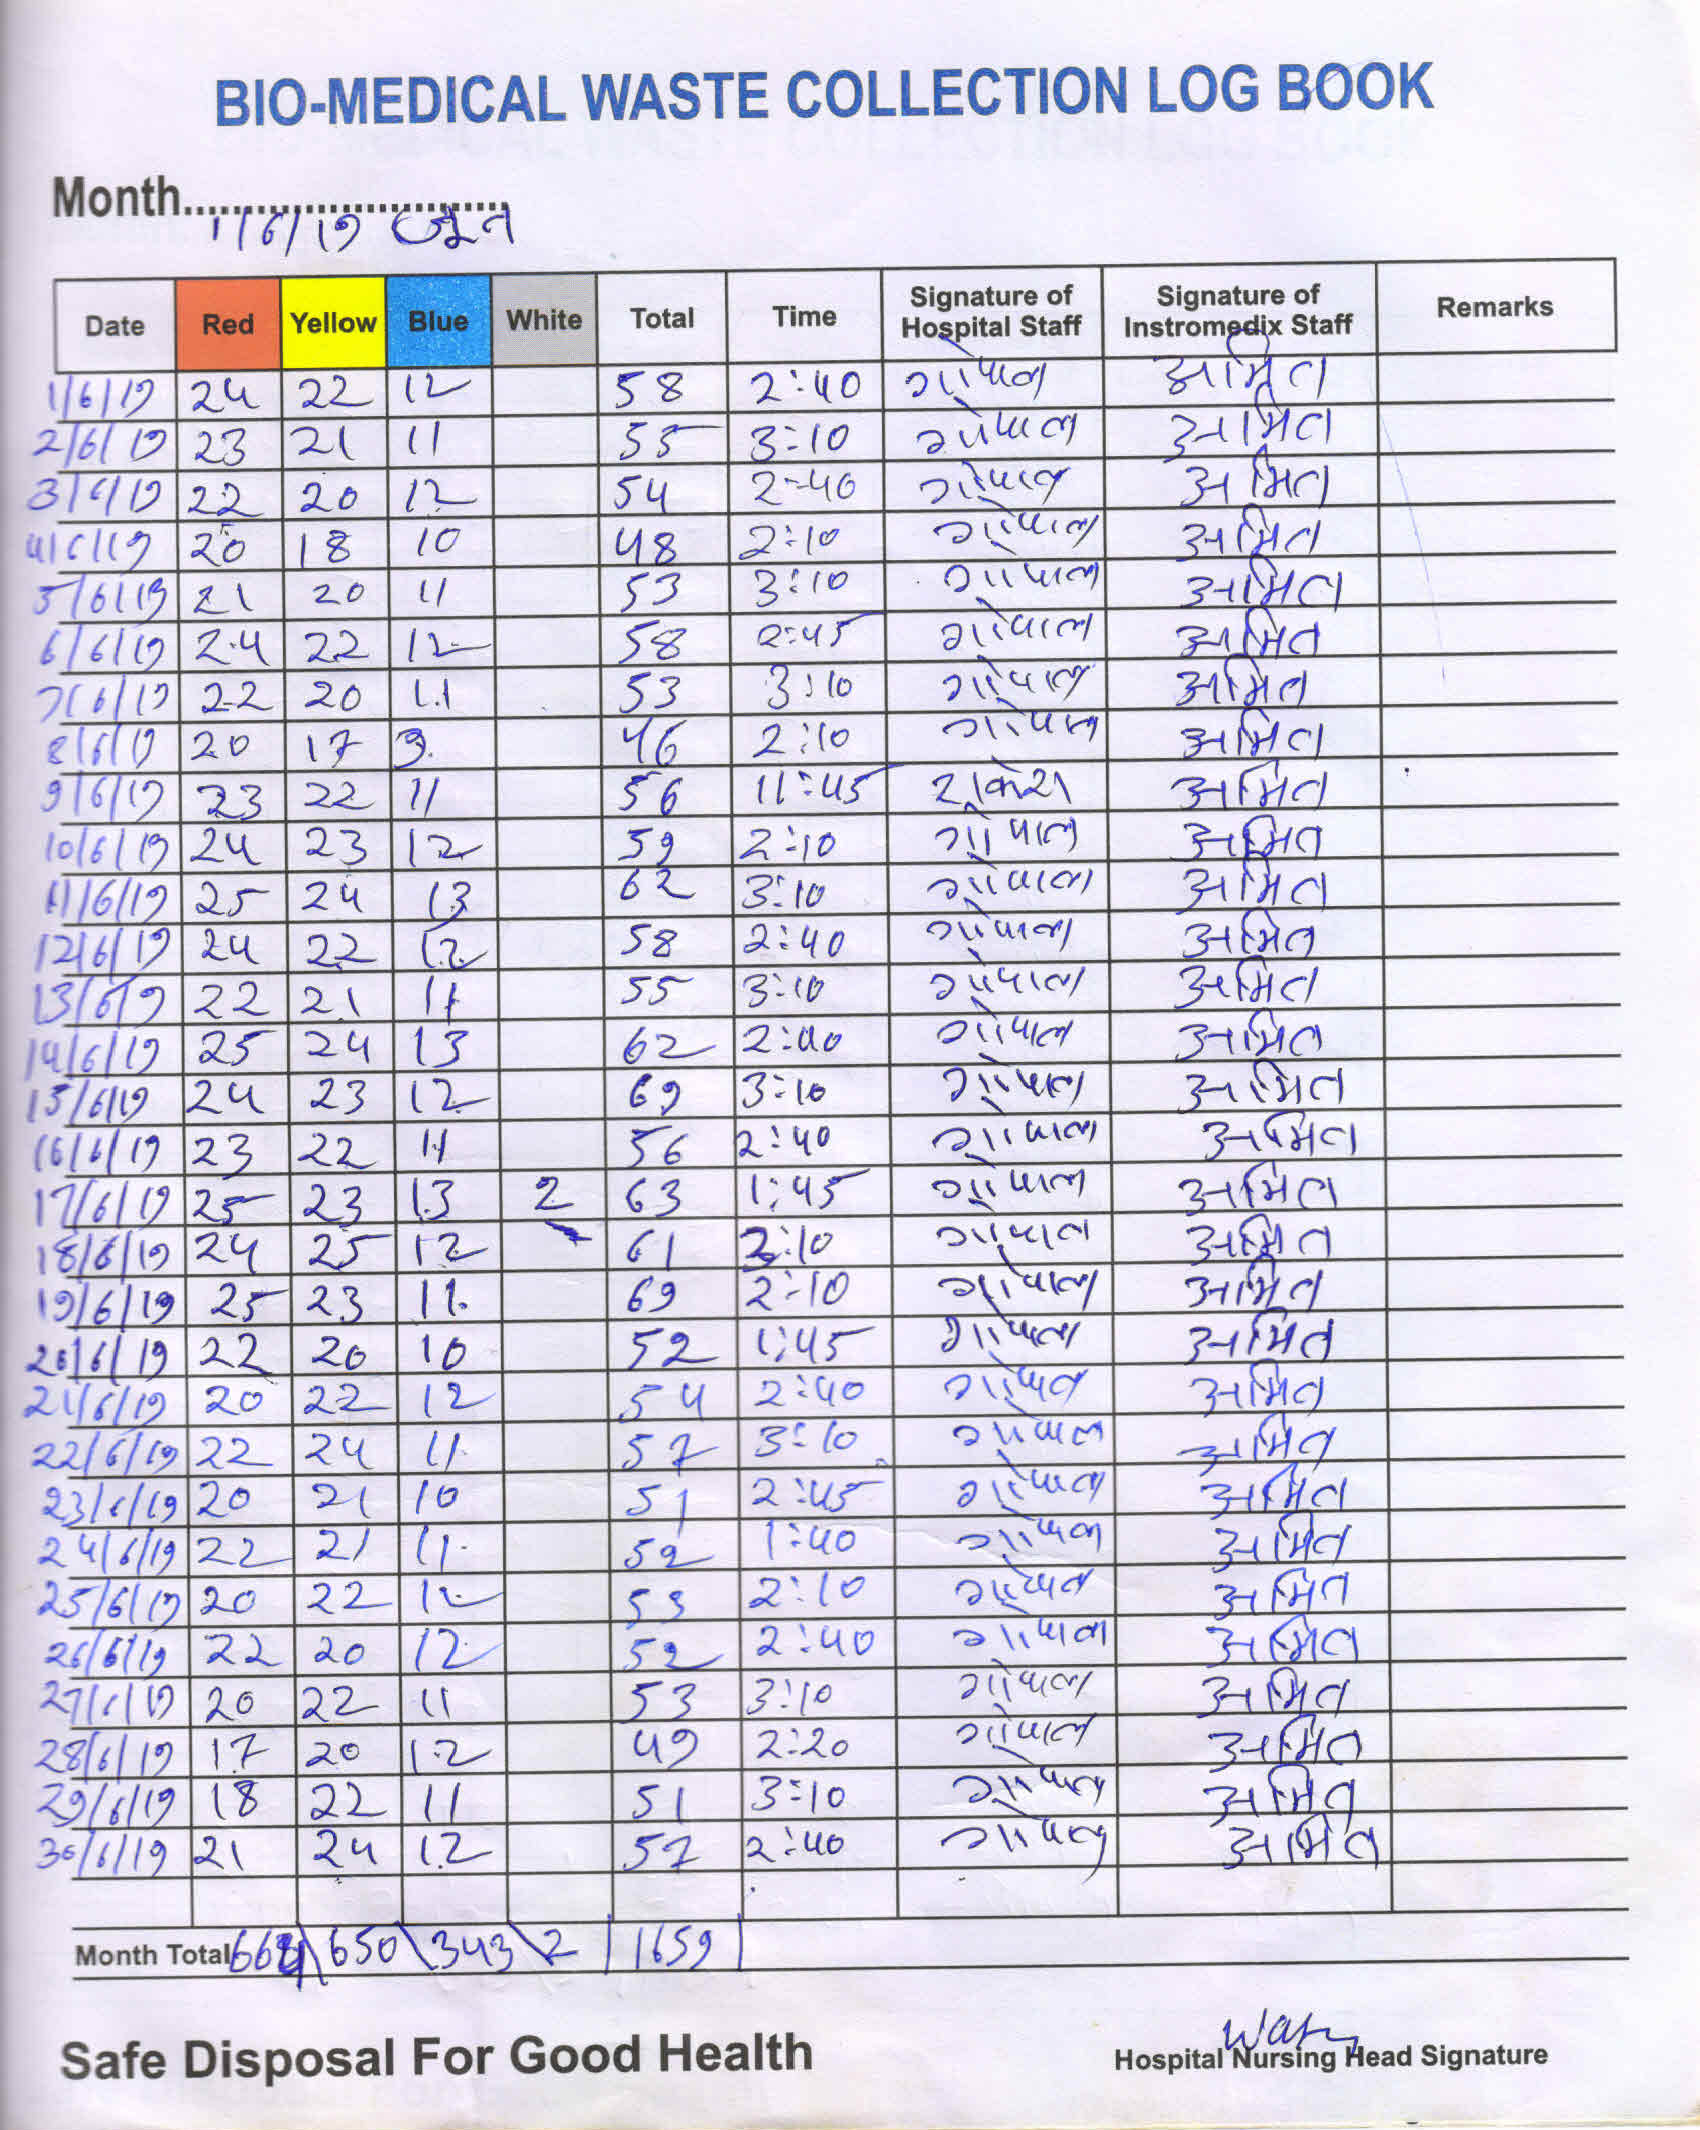 BIO-MEDICAL WASTE COLLECTION LOG BOOK
Month..............................
1/6/19 जून
Date Red Yellow Blue White Total Time Signature of Hospital Staff Signature of Instromedix Staff Remarks
1/6/19 24 22 12 58 2:40 गोपाल अमित
2/6/19 23 21 11 55 3:10 गोपाल अमित
3/6/19 22 20 12 54 2:40 गोपाल अमित
4/6/19 20 18 10 48 2:10 गोपाल अमित
5/6/19 21 20 11 53 3:10 गोपाल अमित
6/6/19 24 22 12 58 2:45 गोपाल अमित
7/6/19 22 20 11 53 3:10 गोपाल अमित
8/6/19 20 17 9 46 2:10 गोपाल अमित
9/6/19 23 22 11 56 11:45 राकेश अमित
10/6/19 24 23 12 59 2:10 गोपाल अमित
11/6/19 25 24 13 62 3:10 गोपाल अमित
12/6/19 24 22 12 58 2:40 गोपाल अमित
13/6/19 22 21 11 55 3:10 गोपाल अमित
14/6/19 25 24 13 62 2:40 गोपाल अमित
15/6/19 24 23 12 69 3:10 गोपाल अमित
16/6/19 23 22 11 56 2:40 गोपाल अमित
17/6/19 25 23 13 2 63 1:45 गोपाल अमित
18/6/19 24 25 12 61 2:10 गोपाल अमित
19/6/19 25 23 11 69 2:10 गोपाल अमित
20/6/19 22 20 10 52 1:45 गोपाल अमित
21/6/19 20 22 12 54 2:40 गोपाल अमित
22/6/19 22 24 11 57 3:10 गोपाल अमित
23/6/19 20 21 10 51 2:45 गोपाल अमित
24/6/19 22 21 11 52 1:40 गोपाल अमित
25/6/19 20 22 12 53 2:10 गोपाल अमित
26/6/19 22 20 12 52 2:40 गोपाल अमित
27/6/19 20 22 11 53 3:10 गोपाल अमित
28/6/19 17 20 12 49 2:20 गोपाल अमित
29/6/19 18 22 11 51 3:10 गोपाल अमित
30/6/19 21 24 12 57 2:40 गोपाल अमित
Month Total 664 650 343 2 1659
Safe Disposal For Good Health
Hospital Nursing Head Signature